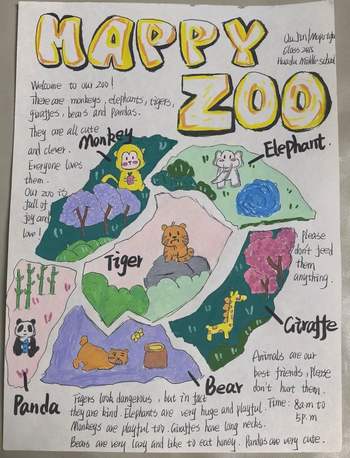 HAPPY
ZOO
Class 2165
Huadu Middle school
Welcome to our zoo!
There are monkeys, elephants, tigers,
giraffes, bears and pandas.
They are all cute
and clever.
Everyone loves
them.
Our zoo is
full of
joy and
love!
Monkey
Elephant
Tiger
Please
don't feed
them
anything.
Giraffe
Panda
Bear
Animals are our
best friends. Please
don't hurt them.
Time: 8 a.m to
5 p.m
Tigers look dangerous, but in fact
they are kind. Elephants are very huge and playful.
Monkeys are playful too. Giraffes have long necks.
Bears are very lazy and like to eat honey. Pandas are very cute.